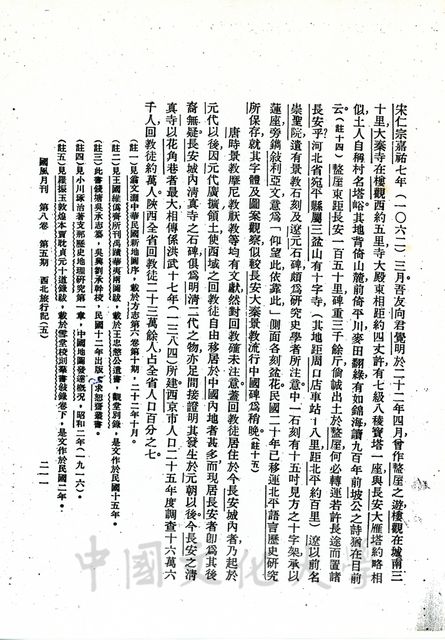 宋仁宗嘉祐七年（一〇六二）三月吾友向君覺明於二十二年四月曾作盩厔之遊樓觀在城南三
十里大秦寺在樓觀西約五里寺大殿東相距約四丈許有七級八稜寶塔一座與長安大雁塔約略相
似土人自稱村名塔峪其地背倚山麓前倚平川麥田翻綠有如錦海讀九百年前坡公之詩猶在目前
云（註十四）盩厔東距長安一百五十里碑重三千餘斤倘誠出土於盩厔何必轉運若許長途而置諸
長安乎河北省宛平縣屬三盆山有十字寺（其地距周口店車站十八里距北平約百里）遼以前名
崇聖院遺有景教石刻及遼元石碑頗為研究史學者所注意中一石刻有十五吋見方之十字架承以
蓮座旁鐫敍利亞文意為「仰望此依靠此」側面各刻盆花民國二十年已移運北平語言歷史研究
所保存就其字體及圖案觀察似較長安大秦景教流行中國碑為稍晚（註十五）
唐時景教摩尼教祆教等均有文獻然對回教確未注意蓋回教徒居住於今長安城內者乃起於
元代以後因元代廣擴領土使西域之回教徒自由移居於中國內地者甚多而現居長安者卽為其後
裔無疑長安城內清真寺之石碑俱為明清二代之物亦足間接證明其發生於元朝以後今長安之清
真寺以花角巷者最大相傳係洪武十七年（一三八四）所建西京市人口二十五年度調查十六萬六
千人回教徒約萬人陝西全省回教徒二十三萬餘人占全省人口百分之七。
（註一）見翁文灝中華民國新地圖序，載於方志第六卷第十期，二十二年十月。
（註二）見王國維儒齋所刊蠻書華夷兩圖跋，載於王忠愨公遺書，觀堂別錄，是文作於民國十五年。
（註三）此書錢塘吳承志著，吳興劉承幹校，民國十二年出版，求恕齋叢書。
（註四）見小川琢治著支那歷史地理研究第一章，中國地圖發達概況，昭和二年（一九一六）。
（註五）見羅振玉敦煌本賈耽貞元十道錄跋，載於雪堂校刊羣書敍錄卷下，是文作於民國二年。
國風月刊　第八卷　第五期　西北旅行記（五）
二一一
中國文化大學